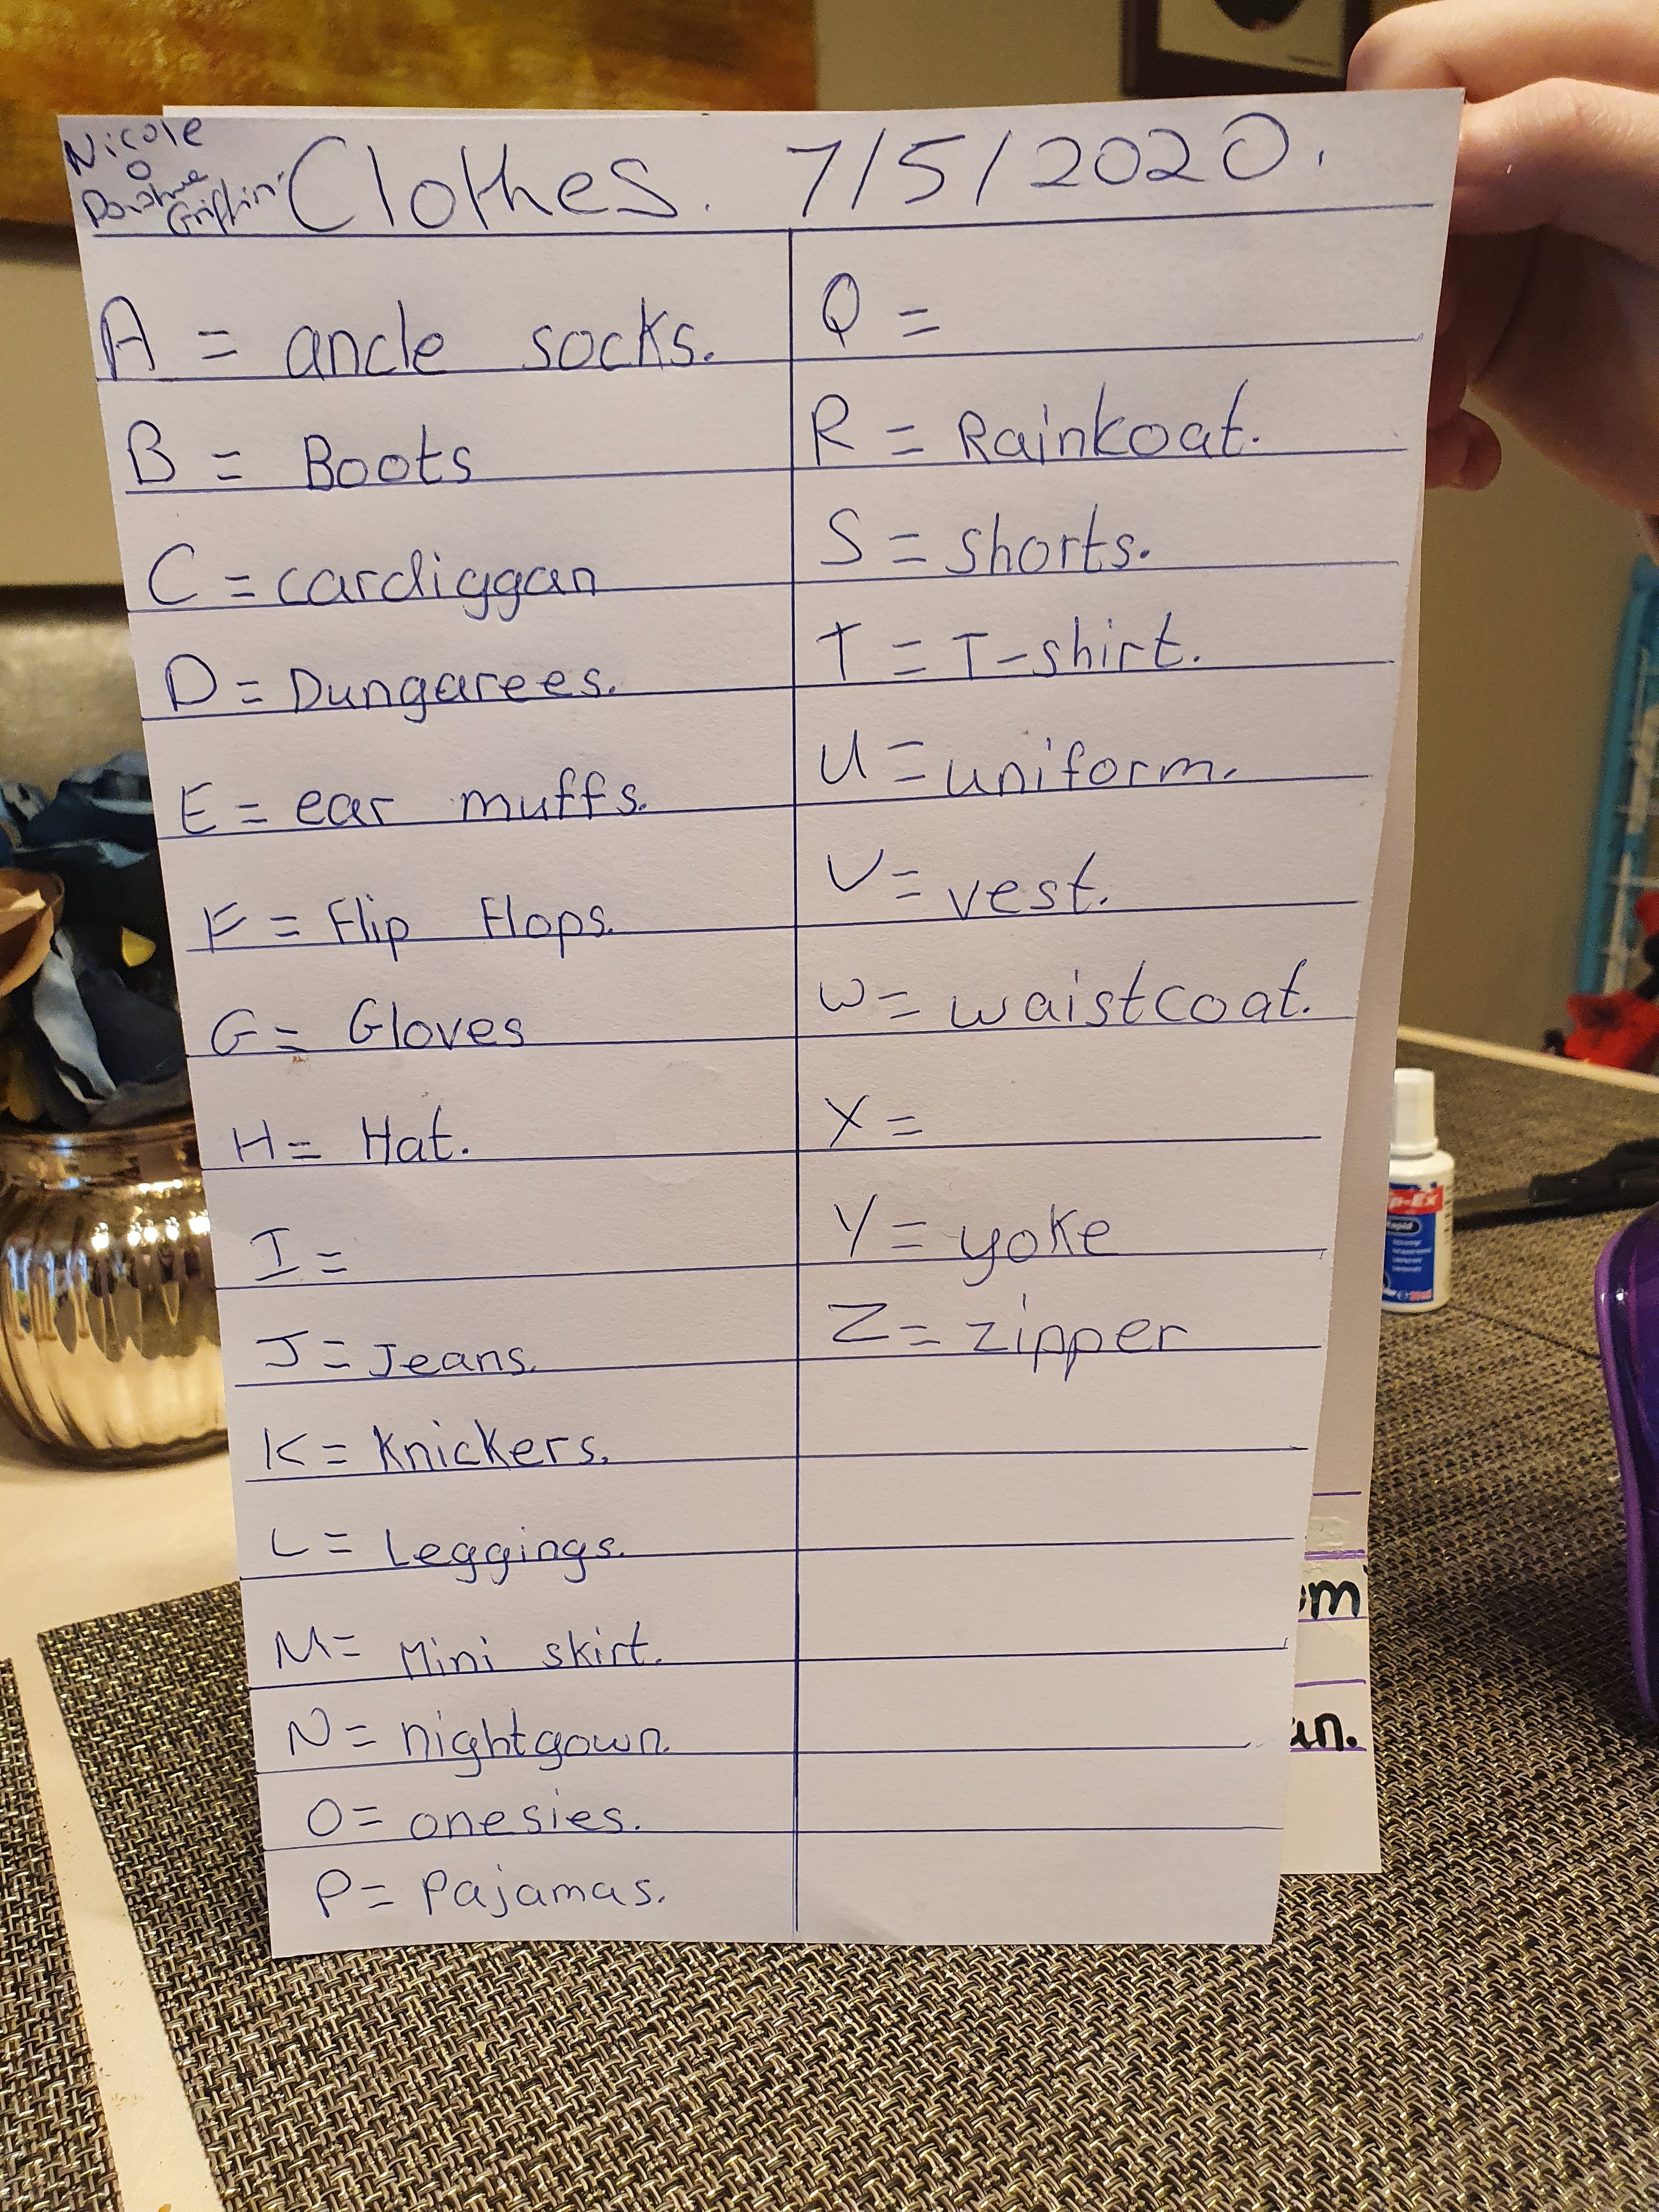 Nicole
O
Donohue
Griffin
Clothes. 7/5/2020.
A = ancle socks.
B = Boots
C = cardiggan
D = Dungarees.
E = ear muffs.
F = Flip Flops.
G = Gloves
H = Hat.
I =
J = Jeans.
K = Knickers.
L = Leggings.
M = Mini skirt.
N = nightgown.
O = onesies.
P = Pajamas.
Q =
R = Rainkoat.
S = shorts.
T = T-shirt.
U = uniform.
V = vest.
W = waistcoat.
X =
Y = yoke
Z = zipper
p-Ex
Rapid
om
an.